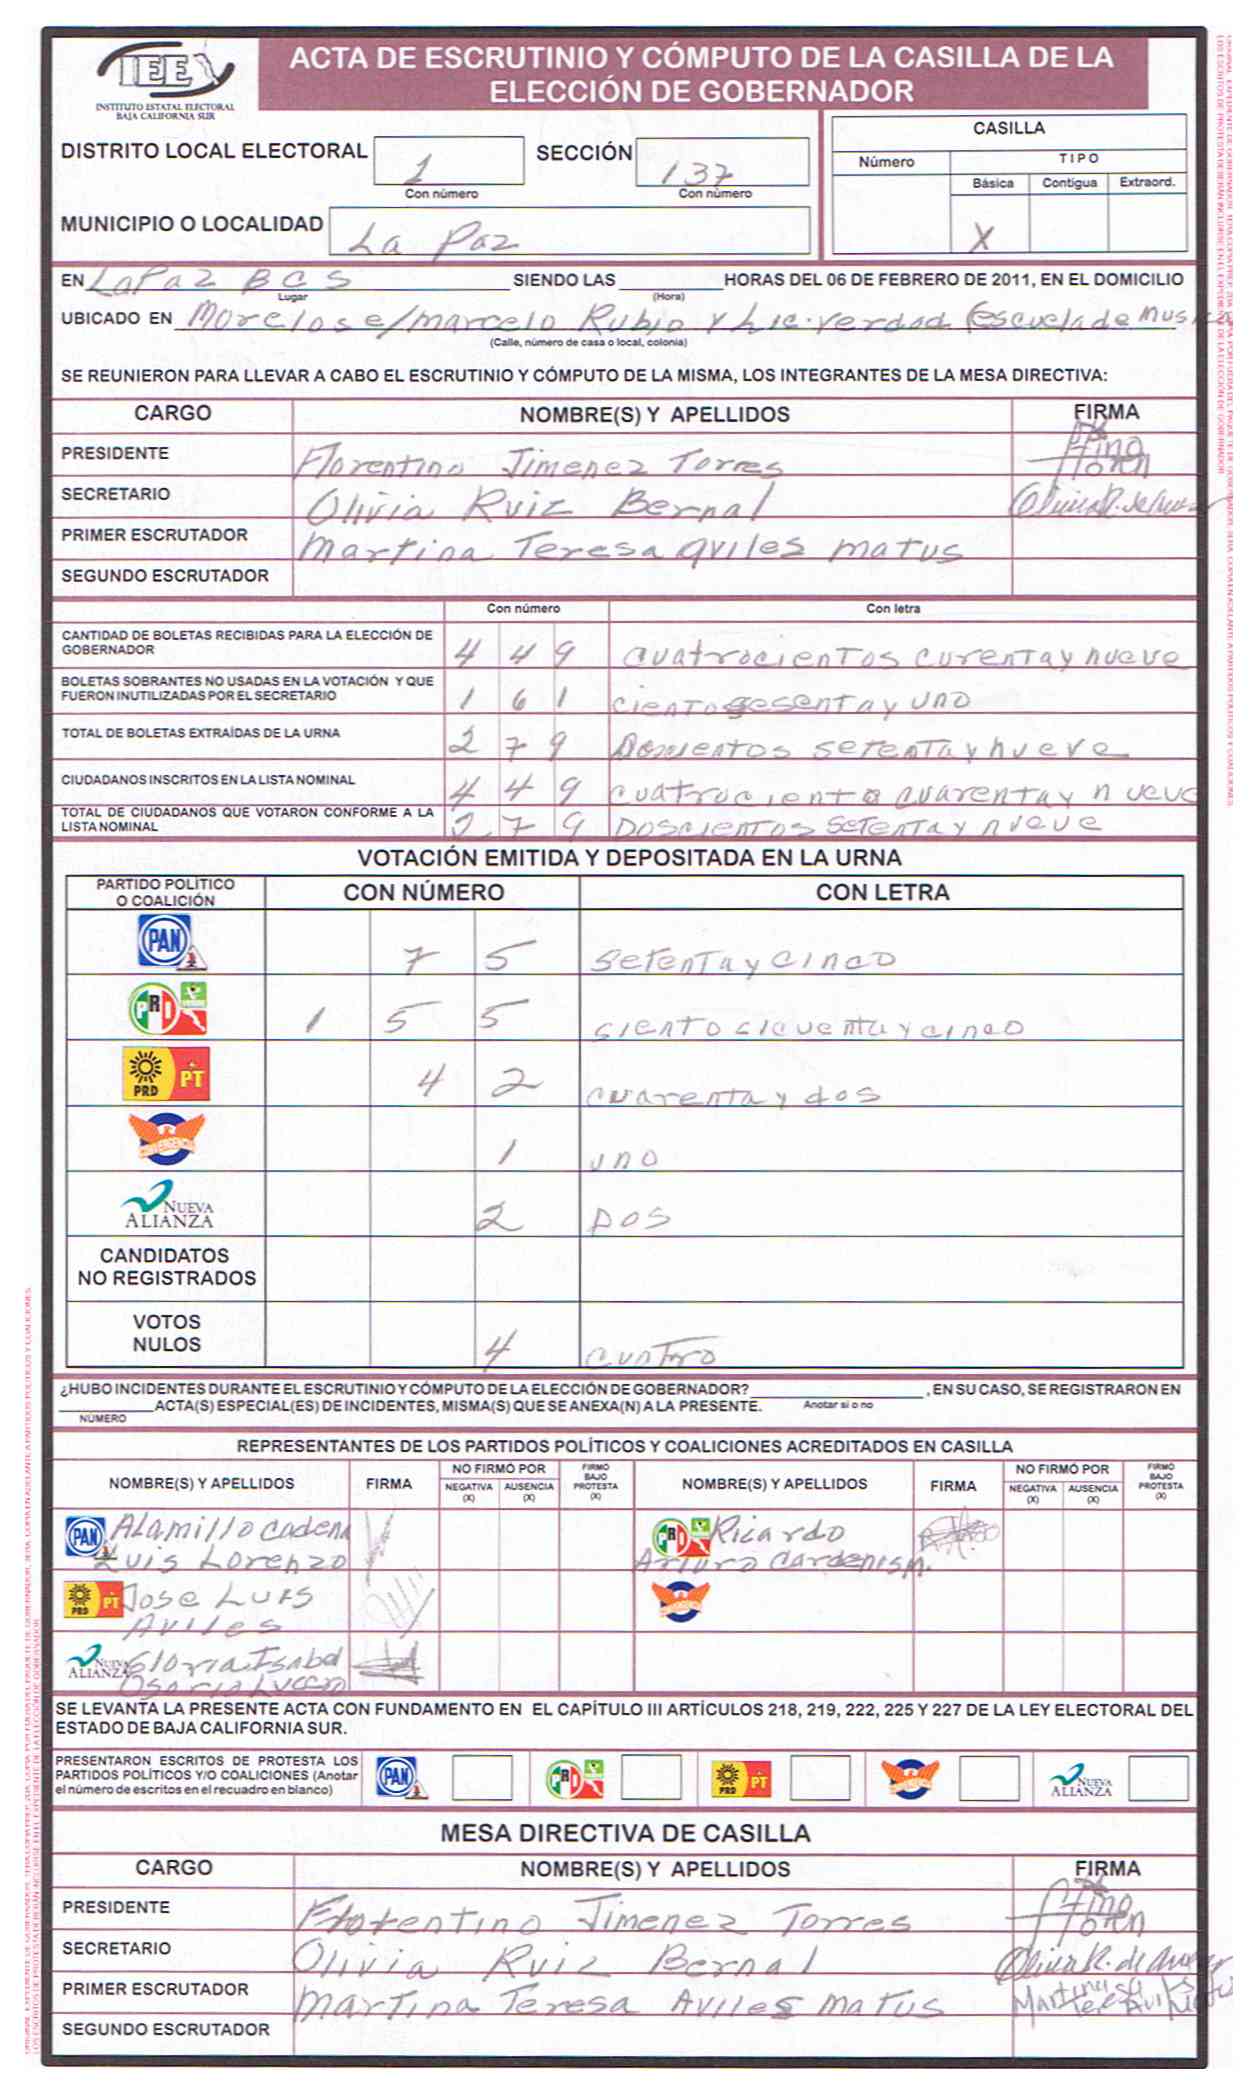 IEE
INSTITUTO ESTATAL ELECTORAL
BAJA CALIFORNIA SUR
ACTA DE ESCRUTINIO Y CÓMPUTO DE LA CASILLA DE LA
ELECCIÓN DE GOBERNADOR
DISTRITO LOCAL ELECTORAL 1 SECCIÓN 137
Con número Con número
MUNICIPIO O LOCALIDAD La Paz
CASILLA
Número TIPO
Básica Contigua Extraord.
X
EN La Paz BCS SIENDO LAS HORAS DEL 06 DE FEBRERO DE 2011, EN EL DOMICILIO
Lugar (Hora)
UBICADO EN Morelos e/marcelo Rubio y Lic. verdad (Escuela de Musica
(Calle, número de casa o local, colonia)
SE REUNIERON PARA LLEVAR A CABO EL ESCRUTINIO Y CÓMPUTO DE LA MISMA, LOS INTEGRANTES DE LA MESA DIRECTIVA:
CARGO NOMBRE(S) Y APELLIDOS FIRMA
PRESIDENTE Florentino Jimenez Torres
SECRETARIO Olivia Ruiz Bernal
PRIMER ESCRUTADOR Martina Teresa aviles matus
SEGUNDO ESCRUTADOR
Con número Con letra
CANTIDAD DE BOLETAS RECIBIDAS PARA LA ELECCIÓN DE
GOBERNADOR 4 4 9 cuatrocientos curenta y nueve
BOLETAS SOBRANTES NO USADAS EN LA VOTACIÓN Y QUE
FUERON INUTILIZADAS POR EL SECRETARIO 1 6 1 ciento sesenta y uno
TOTAL DE BOLETAS EXTRAÍDAS DE LA URNA 2 7 9 Doscientos setenta y nueve
CIUDADANOS INSCRITOS EN LA LISTA NOMINAL 4 4 9 cuatrociento cuarenta y nueve
TOTAL DE CIUDADANOS QUE VOTARON CONFORME A LA
LISTA NOMINAL 2 7 9 Doscientos setenta y nueve
VOTACIÓN EMITIDA Y DEPOSITADA EN LA URNA
PARTIDO POLÍTICO
O COALICIÓN CON NÚMERO CON LETRA
PAN 7 5 setenta y cinco
PRI 1 5 5 siento sicuenta y cinco
PRD PT 4 2 cuarenta y dos
CONVERGENCIA 1 uno
NUEVA ALIANZA 2 Dos
CANDIDATOS
NO REGISTRADOS
VOTOS
NULOS 4 cuatro
¿HUBO INCIDENTES DURANTE EL ESCRUTINIO Y CÓMPUTO DE LA ELECCIÓN DE GOBERNADOR? , EN SU CASO, SE REGISTRARON EN
ACTA(S) ESPECIAL(ES) DE INCIDENTES, MISMA(S) QUE SE ANEXA(N) A LA PRESENTE. Anotar si o no
NÚMERO
REPRESENTANTES DE LOS PARTIDOS POLÍTICOS Y COALICIONES ACREDITADOS EN CASILLA
NOMBRE(S) Y APELLIDOS FIRMA NO FIRMÓ POR NEGATIVA (X) AUSENCIA (X) FIRMÓ BAJO PROTESTA (X) NOMBRE(S) Y APELLIDOS FIRMA NO FIRMÓ POR NEGATIVA (X) AUSENCIA (X) FIRMÓ BAJO PROTESTA (X)
PAN Alamillo Cadena PRI Ricardo
Luis Lorenzo Arturo Cardenas M.
PRD PT Jose Luis
Aviles
NUEVA ALIANZA Gloria Isabel
Osoria
SE LEVANTA LA PRESENTE ACTA CON FUNDAMENTO EN EL CAPÍTULO III ARTÍCULOS 218, 219, 222, 225 Y 227 DE LA LEY ELECTORAL DEL
ESTADO DE BAJA CALIFORNIA SUR.
PRESENTARON ESCRITOS DE PROTESTA LOS
PARTIDOS POLÍTICOS Y/O COALICIONES (Anotar
el número de escritos en el recuadro en blanco)
PAN PRI PRD PT NUEVA ALIANZA
MESA DIRECTIVA DE CASILLA
CARGO NOMBRE(S) Y APELLIDOS FIRMA
PRESIDENTE Florentino Jimenez Torres
SECRETARIO Olivia Ruiz Bernal
PRIMER ESCRUTADOR Martina Teresa Aviles matus
SEGUNDO ESCRUTADOR